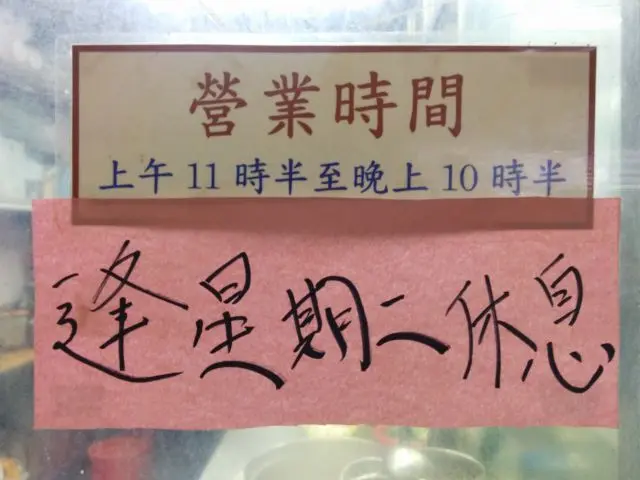 營業時間
上午 11 時半至晚上 10 時半
逢星期二休息